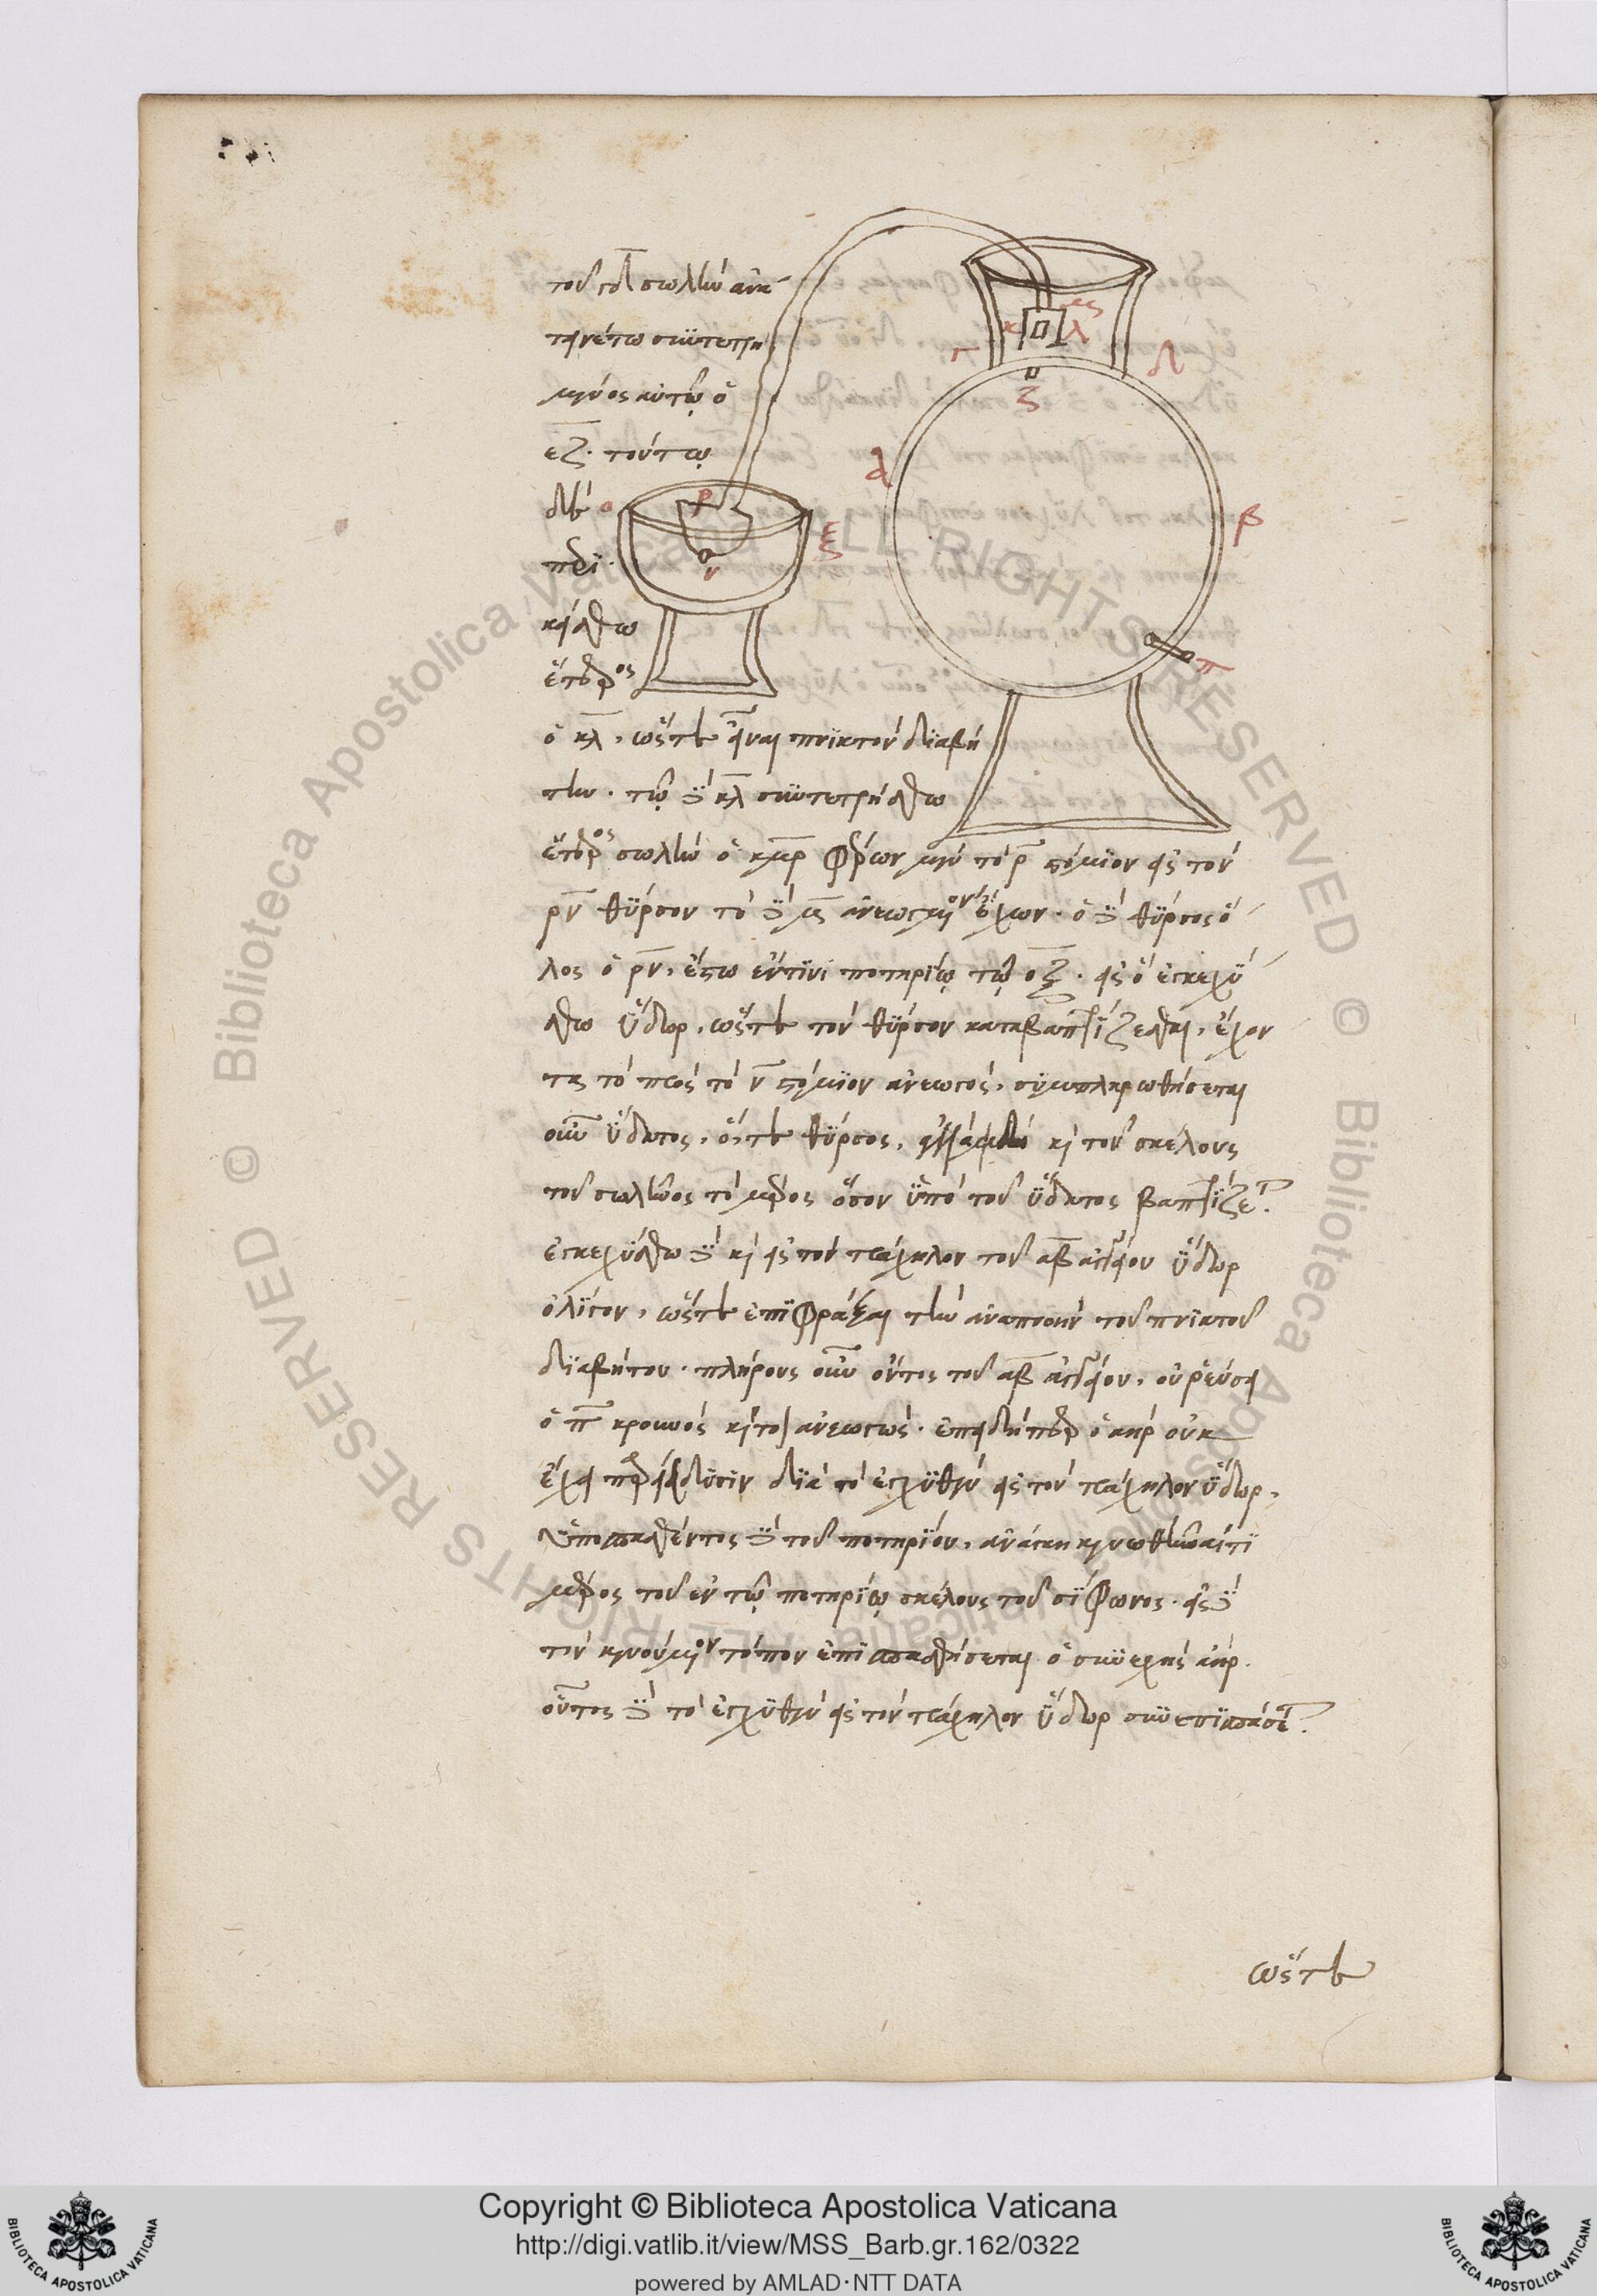 τοῦ γδ σωλὴν ἀνα
τεινέτω συντετρη
μένος αὐτῷ ὁ
εζ. τούτῳ
δὲ ο ρ ξ
περι ν
κείσθω
ἕτερος
ὁ κλ, ὥστε εἶναι πνικτὸν διαβή
την. τῷ δὲ κλ συντετρήσθω
ἕτερος σωλὴν ὁ κμρ φέρων μὲν τὸ ρ στόμιον εἰς τὸν
ρν θύρσον τὸ δὲ μς ἀνεωγμένον ἔχων. ὁ δὲ θύρσος ὅ
λος ὁ ρν, ἔστω ἔν τινι ποτηρίῳ τῷ οξ. εἰς ὃ ἐγκεχύ
σθω ὕδωρ, ὥστε τὸν θύρσον καταβαπτίζεσθαι, ἔχον
τα τὸ πρὸς τὸ ν στόμιον ἀνεωγός, συμπληρωθήσεται
οὖν ὕδατος, ὅ,τε θύρσος, καὶ τοῦ σκέλους
τοῦ σωλῆνος τὸ μέρος ὅσον ὑπὸ τοῦ ὕδατος βαπτίζεται.
ἐγκεχύσθω δὲ καὶ εἰς τὸν τράχηλον τοῦ αβ ἀγγείου ὕδωρ
ὀλίγον, ὥστε ἐπιφράξαι τὴν ἀναπνοὴν τοῦ πνικτοῦ
διαβήτου. πλήρους οὖν ὄντος τοῦ αβ ἀγγείου, οὐ ῥεύσει
ὁ π κρουνὸς καίτοι ἀνεωγώς. ἐπειδήπερ ὁ ἀὴρ οὐκ
ἔχει παρείσδυσιν διὰ τὸ ἐγχυθὲν εἰς τὸν τράχηλον ὕδωρ,
ὑποσπασθέντος δὲ τοῦ ποτηρίου, ἀνάγκη κενωθῆναί τι
μέρος τοῦ ἐν τῷ ποτηρίῳ σκέλους τοῦ σίφωνος. εἰς δὲ
τὸν κενούμενον τόπον ἐπισπασθήσεται ὁ συνεχὴς ἀήρ.
οὗτος δὲ τὸ ἐγχυθὲν εἰς τὸν τράχηλον ὕδωρ συνεπισπάσεται.
ὥστε
μς
κ λ
γ δ
ζ
α
β
π
Copyright © Biblioteca Apostolica Vaticana
http://digi.vatlib.it/view/MSS_Barb.gr.162/0322
powered by AMLAD·NTT DATA
BIBLIOTECA APOSTOLICA VATICANA
BIBLIOTECA APOSTOLICA VATICANA
© Biblioteca Apostolica Vaticana ALL RIGHTS RESERVED © Biblioteca Apostolica Vaticana ALL RIGHTS RESERVED